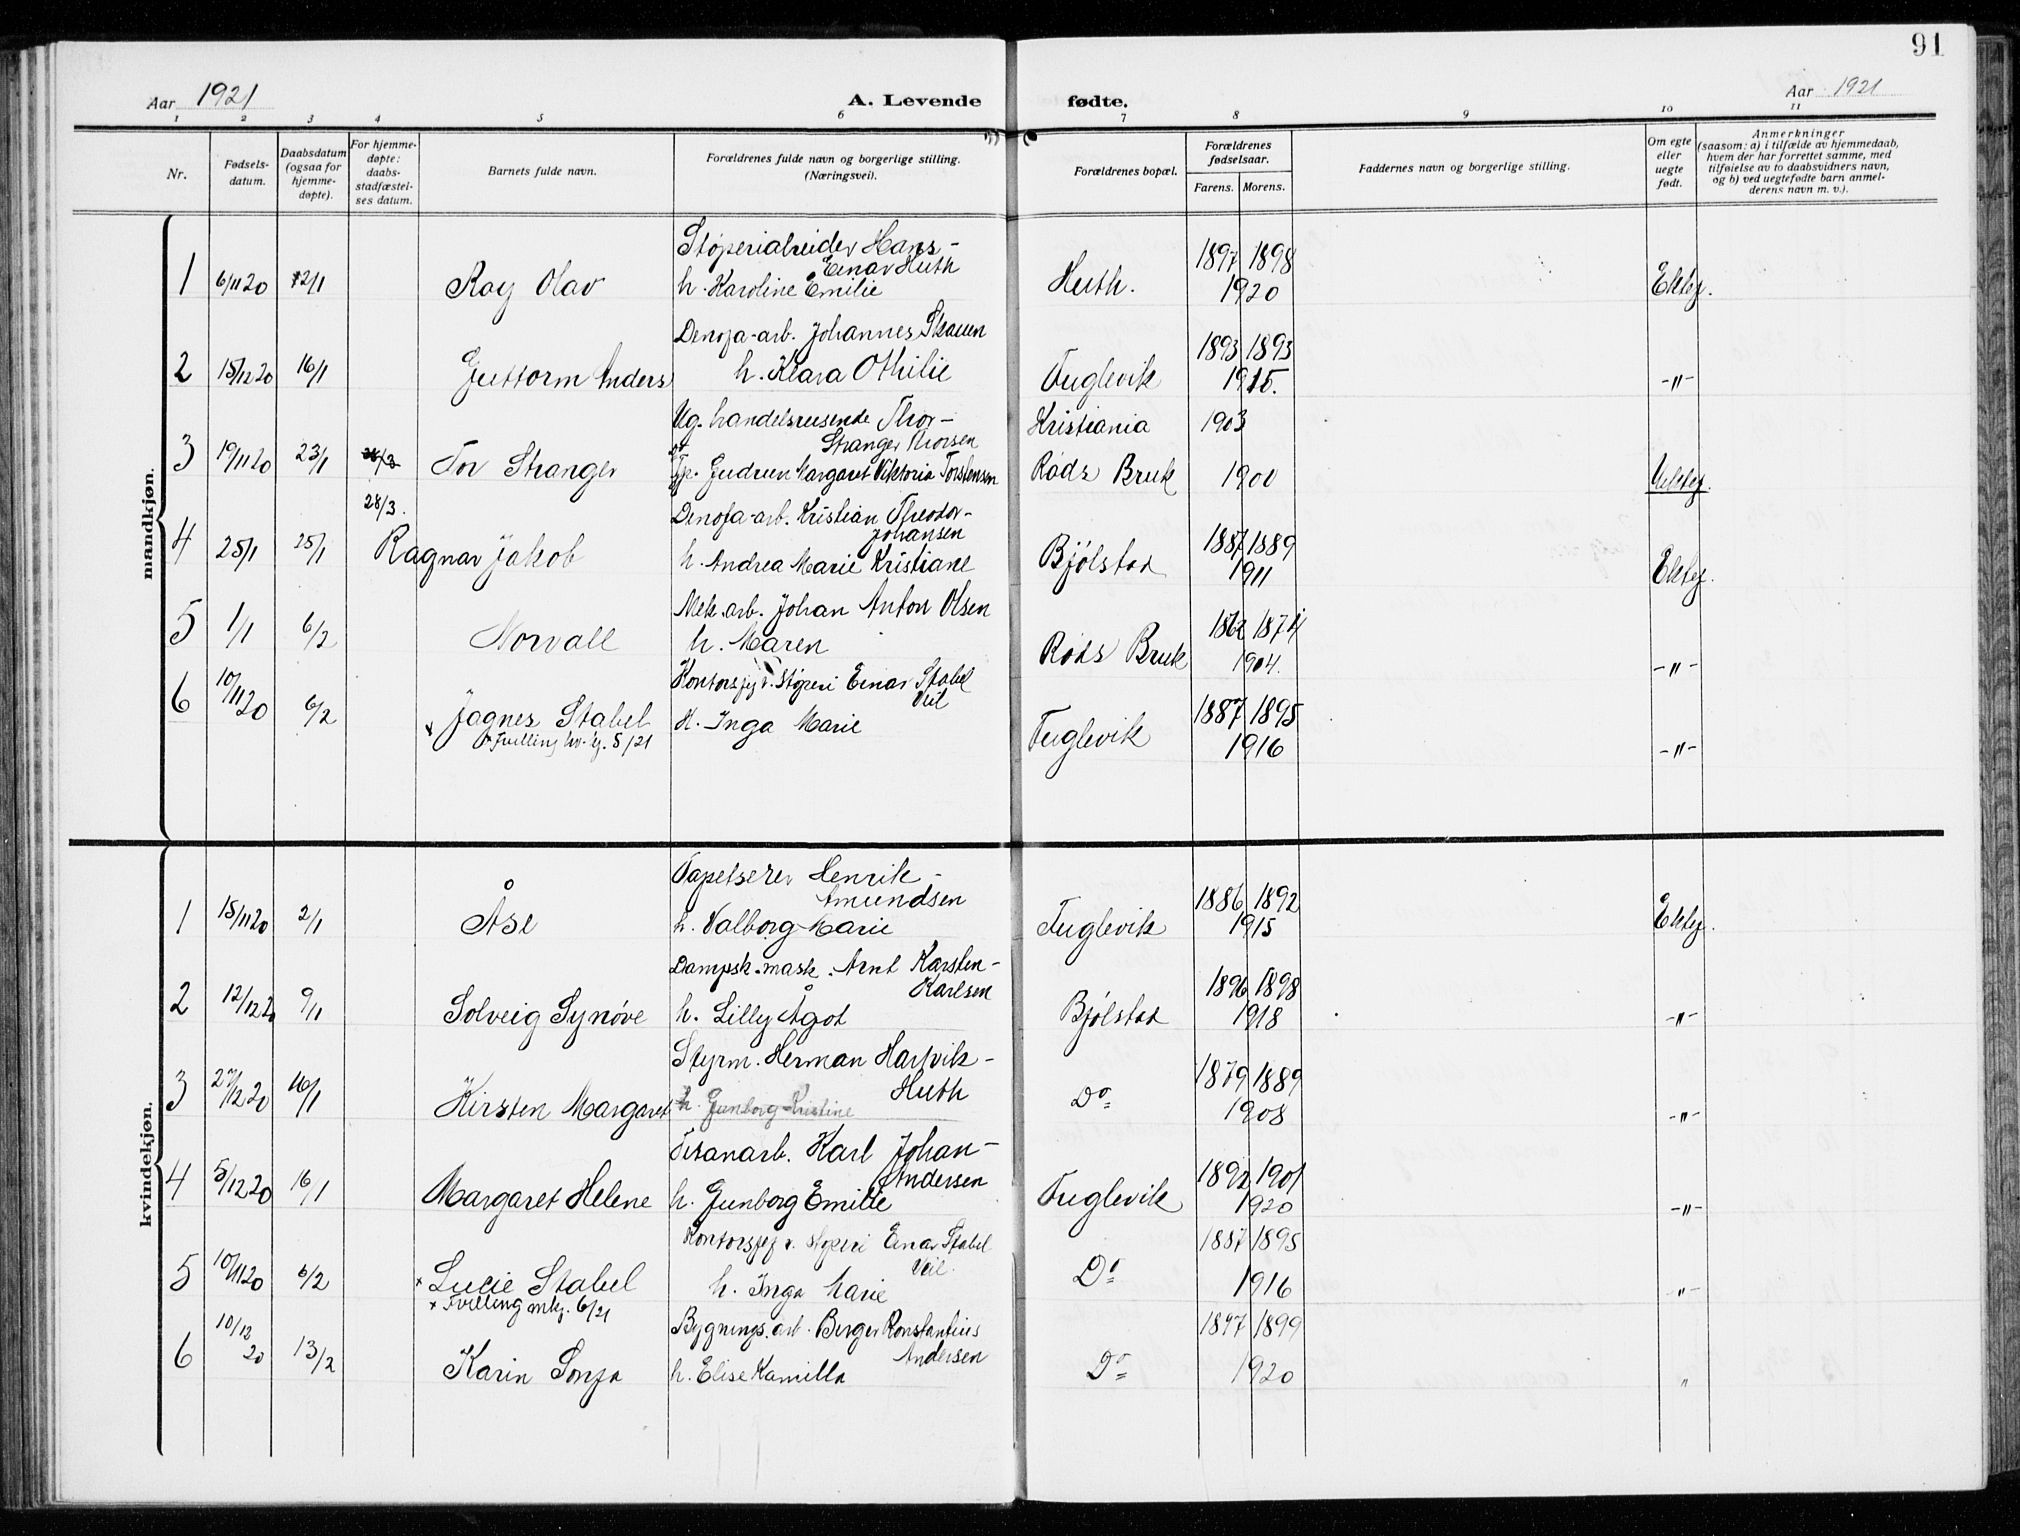 91
Aar 1921
A. Levende fødte.
Aar 1921
1 2 3 4 5 6 7 8 9 10 11
Nr.
Fødsels-
datum.
Daabsdatum
(ogsaa for
hjemme-
døpte).
For hjemme-
døpte:
daabs-
stadfæstel-
ses datum.
Barnets fulde navn.
Forældrenes fulde navn og borgerlige stilling.
(Næringsvei).
Forældrenes bopæl.
Forældrenes
fødselsaar.
Farens. Morens.
Faddernes navn og borgerlige stilling.
Om egte
eller
uegte
født.
Anmerkninger
(saasom: a) i tilfælde av hjemmedaab,
hvem der har forrettet samme, med
tilføielse av to daabsvidners navn,
og b) ved uegtefødte barn anmel-
derens navn m. v.).
mandkjøn.
Støperiarbeider Hans -
Einar Huth
1897 1898
1 6/11 20 2/1 Roy Olav h. Karoline Emilie Huth. 1920 Ektef.
Denofa-arb. Johannes Skauen
1893 1893
2 15/12 20 16/1 Guttorm Anders h. Klara Othilie Fuglevik 1915. -"-
Ug. handelsreisende Thor - Kristiania 1903
Stranger Thorsen
3 19/11 20 23/1 Tor Stranger Tp. Gudrun Margaret Viktoria Torstensen Røds Bruk 1900 Uektef.
28/3.
Denofa-arb. Kristian Theodor -
Johansen
1887 1889
4 25/1 25/1 Ragnar Jakob h. Andrea Marie Kristiane Bjølstad 1911 Ektef.
Mek. arb. Johan Anton Olsen
1862 1874
5 1/1 6/2 Norvall h. Maren Røds Bruk 1904. -"-
Kontorsjef v. Støperi Einar Stabel
Veil
1887 1895
6 10/11 20 6/2 x Jagnes Stabel H. Inga Marie Fuglevik 1916 -"-
x Tvilling kv. kj. 5/21
kvindekjøn.
Tapetserer Henrik -
Amundsen
1886 1892
1 15/11 20 2/1 Åse h. Valborg Marie Fuglevik 1915 Ektef.
Dampsk. mask. Arnt Karsten -
Karlsen
1896 1898
2 12/12 20 9/1 Solveig Synøve h. Lilly Ågot Bjølstad 1918 -"-
Styrm. Herman Hartvik -
Huth
1879 1889
3 27/12 20 16/1 Kirsten Margaret h. Gunborg Kristine Do 1908 -"-
Titanarb. Karl Johan -
Andersen
1892 1901
4 5/12 20 16/1 Margaret Helene h. Gunborg Emilie Fuglevik 1920 -"-
Kontorsjef v. støperi Einar Stabel
Veil.
1887 1895
5 10/11 20 6/2 x Lucie Stabel h. Inga Marie Do 1916 "
x Tvilling mkj. 6/21
Bygnings. arb. Birger Konstantius
Andersen
1897 1899
6 10/12 20 13/2 Karin Sonja h. Elise Kamilla Do 1920 "